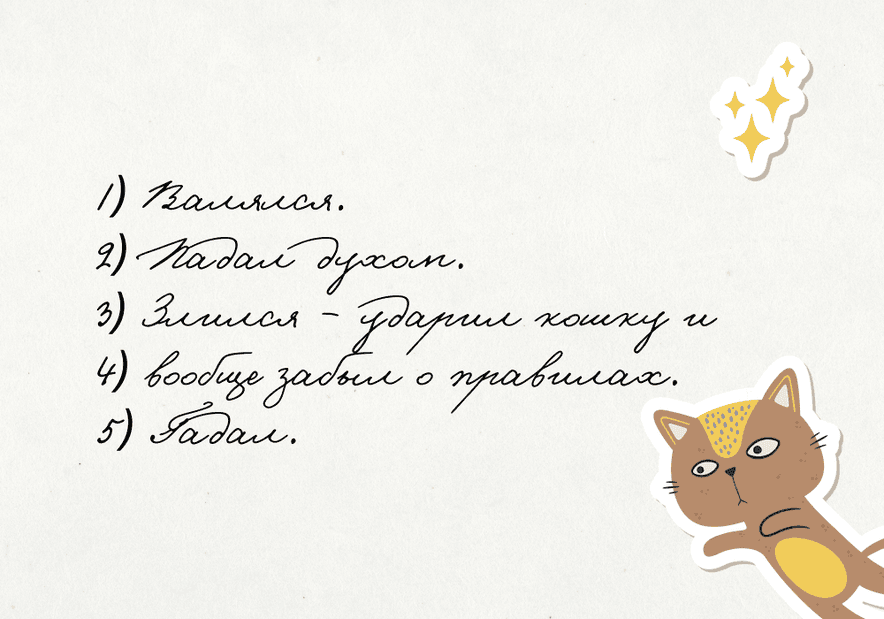 1) Валялся.
2) Падал духом.
3) Злился - ударил кошку и
4) вообще забыл о правилах.
5) Гадал.